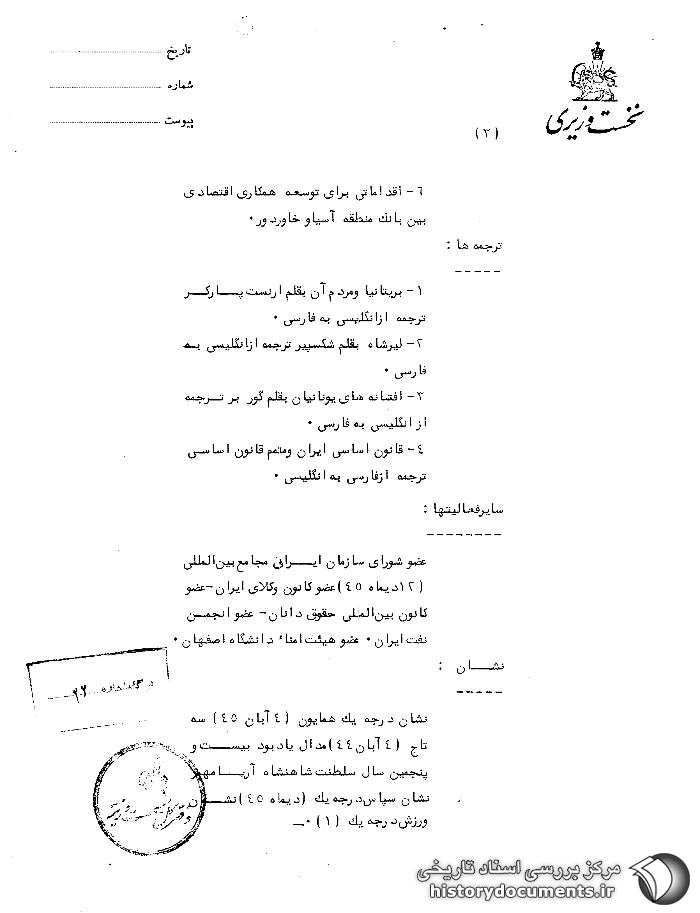 تاریخ
شماره
پیوست
نخست وزیری
(۳)
٦- اقداماتی برای توسعه همکاری اقتصادی
بین بانك منطقه آسیاو خاوردور۰
ترجمه ها :
-----
۱- بریتانیا ومردم آن بقلم ارنست پـــارکــر
ترجمه ازانگلیسی به فارسی ۰
۲- لیرشاه بقلم شکسپیر ترجمه ازانگلیسی بـه
فارسی ۰
۳- افشانه های یونانیان بقلم گور بر تـرجمه
از انگلیسی به فارسی ۰
٤- قانون اساسی ایران ومتمم قانون اساســی
ترجمه ازفارسی به انگلیسی ۰
سایرفعالیتها :
--------
عضو شورای سازمان ایـــرانی مجامع بین‌المللی
(۱۲دیماه ٤۵)عضو کانون وکلای ایران-عضو
کانون بین‌المللی حقوق دانان- عضو انجمـــن
نفت ایران۰ عضو هیئت امناء دانشگاه اصفهان۰
نشـــان :
-----
نشان درجه یك همایون (٤ آبان ٤۵) سه
تاج (٤ آبان٤٤)مدال یادبود بیســـت و
پنجمین سال سلطنت شاهنشاه آریـــامهر
نشان سپاس‌درجه یك (دیماه ٤۵)نشـــ
ورزش‌درجه یك (۱)۰ــ
نخست وزیری
مرکز بررسی اسناد تاریخی
historydocuments.ir